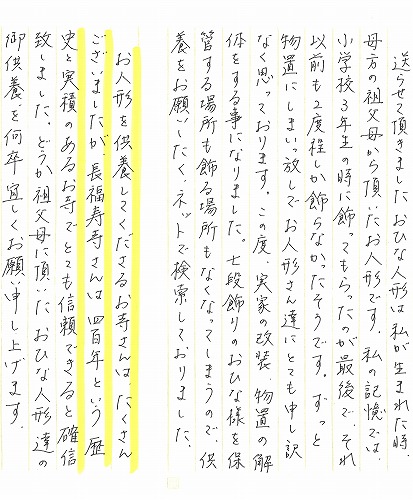 送らせて頂きましたおひな人形は私が生まれた時、
母方の祖父母から頂いたお人形です。私の記憶では、
小学校3年生の時に飾ってもらったのが最後で、それ
以前も2度程しか飾らなかったそうです。ずっと
物置にしまいっ放しでお人形さん達にとても申し訳
なく思っております。この度、実家の改装、物置の解
体をする事になりました。七段飾りのおひな様を保
管する場所も飾る場所もなくなってしまうので、供
養をお願いしたく、ネットで検索しておりました。
お人形を供養してくださるお寺さんは、たくさん
ございましたが、長福寿寺さんは四百年という歴
史と実積のあるお寺でとても信頼できると確信
致しました。どうか祖父母に頂いたおひな人形達の
御供養を何卒宜しくお願い申し上げます。